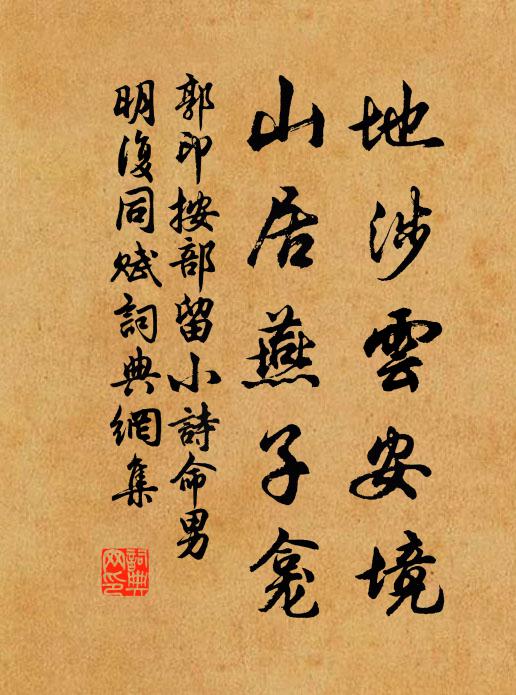 地涉雲安境
山居燕子龛
郭印按部留小詩命男
明復同賦詞典網集
詞典網印